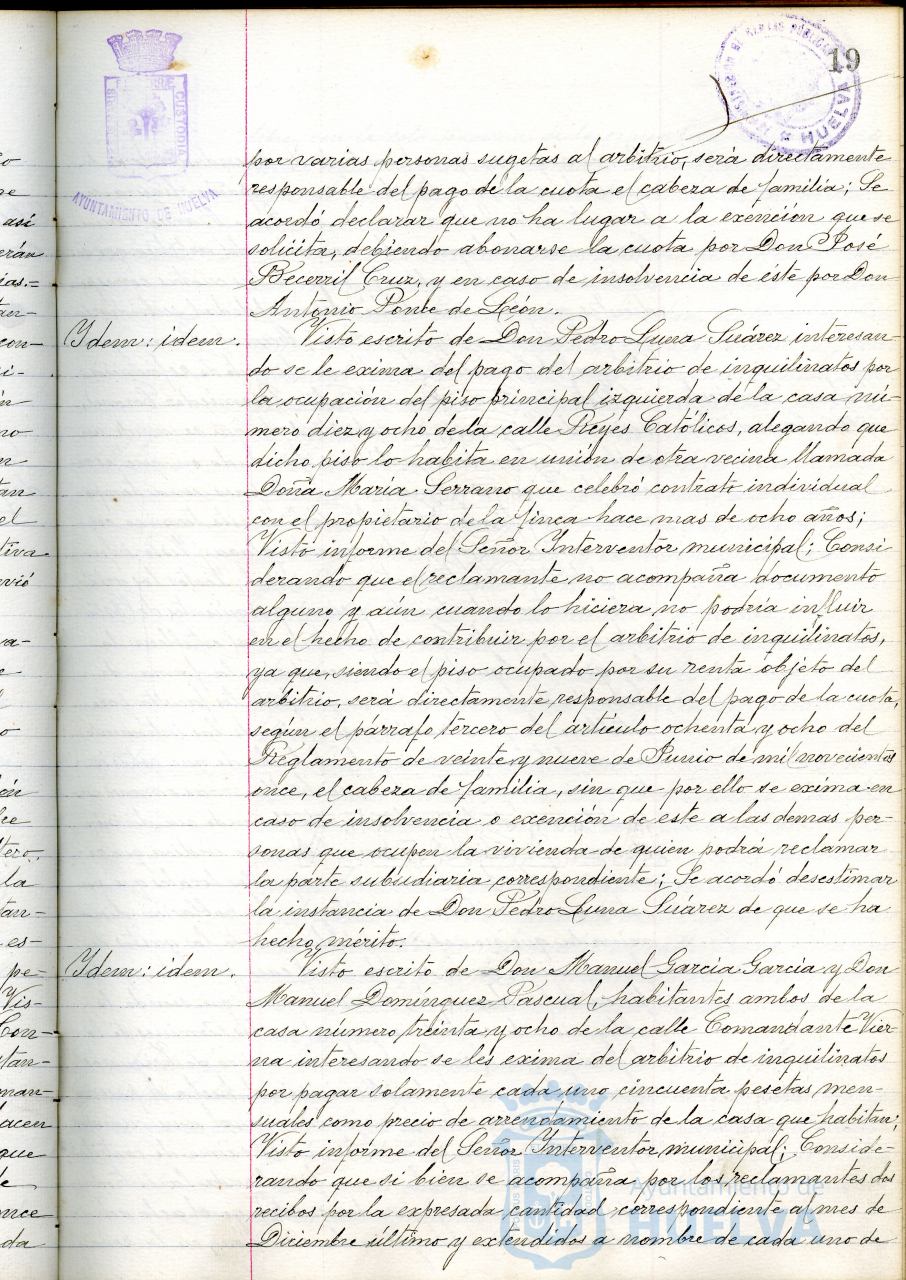 19
AYUNTAMIENTO DE HUELVA
por varias personas sugetas al arbitrio, será directamente
responsable del pago de la cuota el cabeza de familia; Se
acordó declarar que no ha lugar a la exención que se
solicita, debiendo abonarse la cuota por Don José
Becerril Cruz, y en caso de insolvencia de éste por Don
Antonio Ponce de León.
Idem: idem.
Visto escrito de Don Pedro Luna Suárez interesan-
do se le exima del pago del arbitrio de inquilinatos por
la ocupación del piso principal izquierda de la casa nú-
mero diez y ocho de la calle Reyes Católicos, alegando que
dicho piso lo habita en unión de otra vecina llamada
Doña María Serrano que celebró contrato individual
con el propietario de la finca hace mas de ocho años;
Visto informe del Señor Interventor municipal; Consi
derando que el reclamante no acompaña documento
alguno y aún cuando lo hiciera no podría influir
en el hecho de contribuir por el arbitrio de inquilinatos,
ya que, siendo el piso ocupado por su renta objeto del
arbitrio, será directamente responsable del pago de la cuota,
según el párrafo tercero del articulo ochenta y ocho del
Reglamento de veinte y nueve de Junio de mil novecientos
once, el cabeza de familia, sin que por ello se exima en
caso de insolvencia o exención de este a las demas per-
sonas que ocupen la vivienda de quien podrá reclamar
la parte subsidiaria correspondiente; Se acordó desestimar
la instancia de Don Pedro Luna Suárez de que se ha
hecho mérito.
Idem: idem.
Visto escrito de Don Manuel Garcia Garcia y Don
Manuel Domínguez Pascual, habitantes ambos de la
casa número treinta y ocho de la calle Comandante Vier
na interesando se les exima del arbitrio de inquilinatos
por pagar solamente cada uno cincuenta pesetas men-
suales como precio de arrendamiento de la casa que habitan;
Visto informe del Señor Interventor municipal; Conside-
rando que si bien se acompaña por los reclamantes dos
recibos por la expresada cantidad, correspondiente al mes de
Diciembre último y extendidos a nombre de cada uno de
Ayuntamiento de
HUELVA